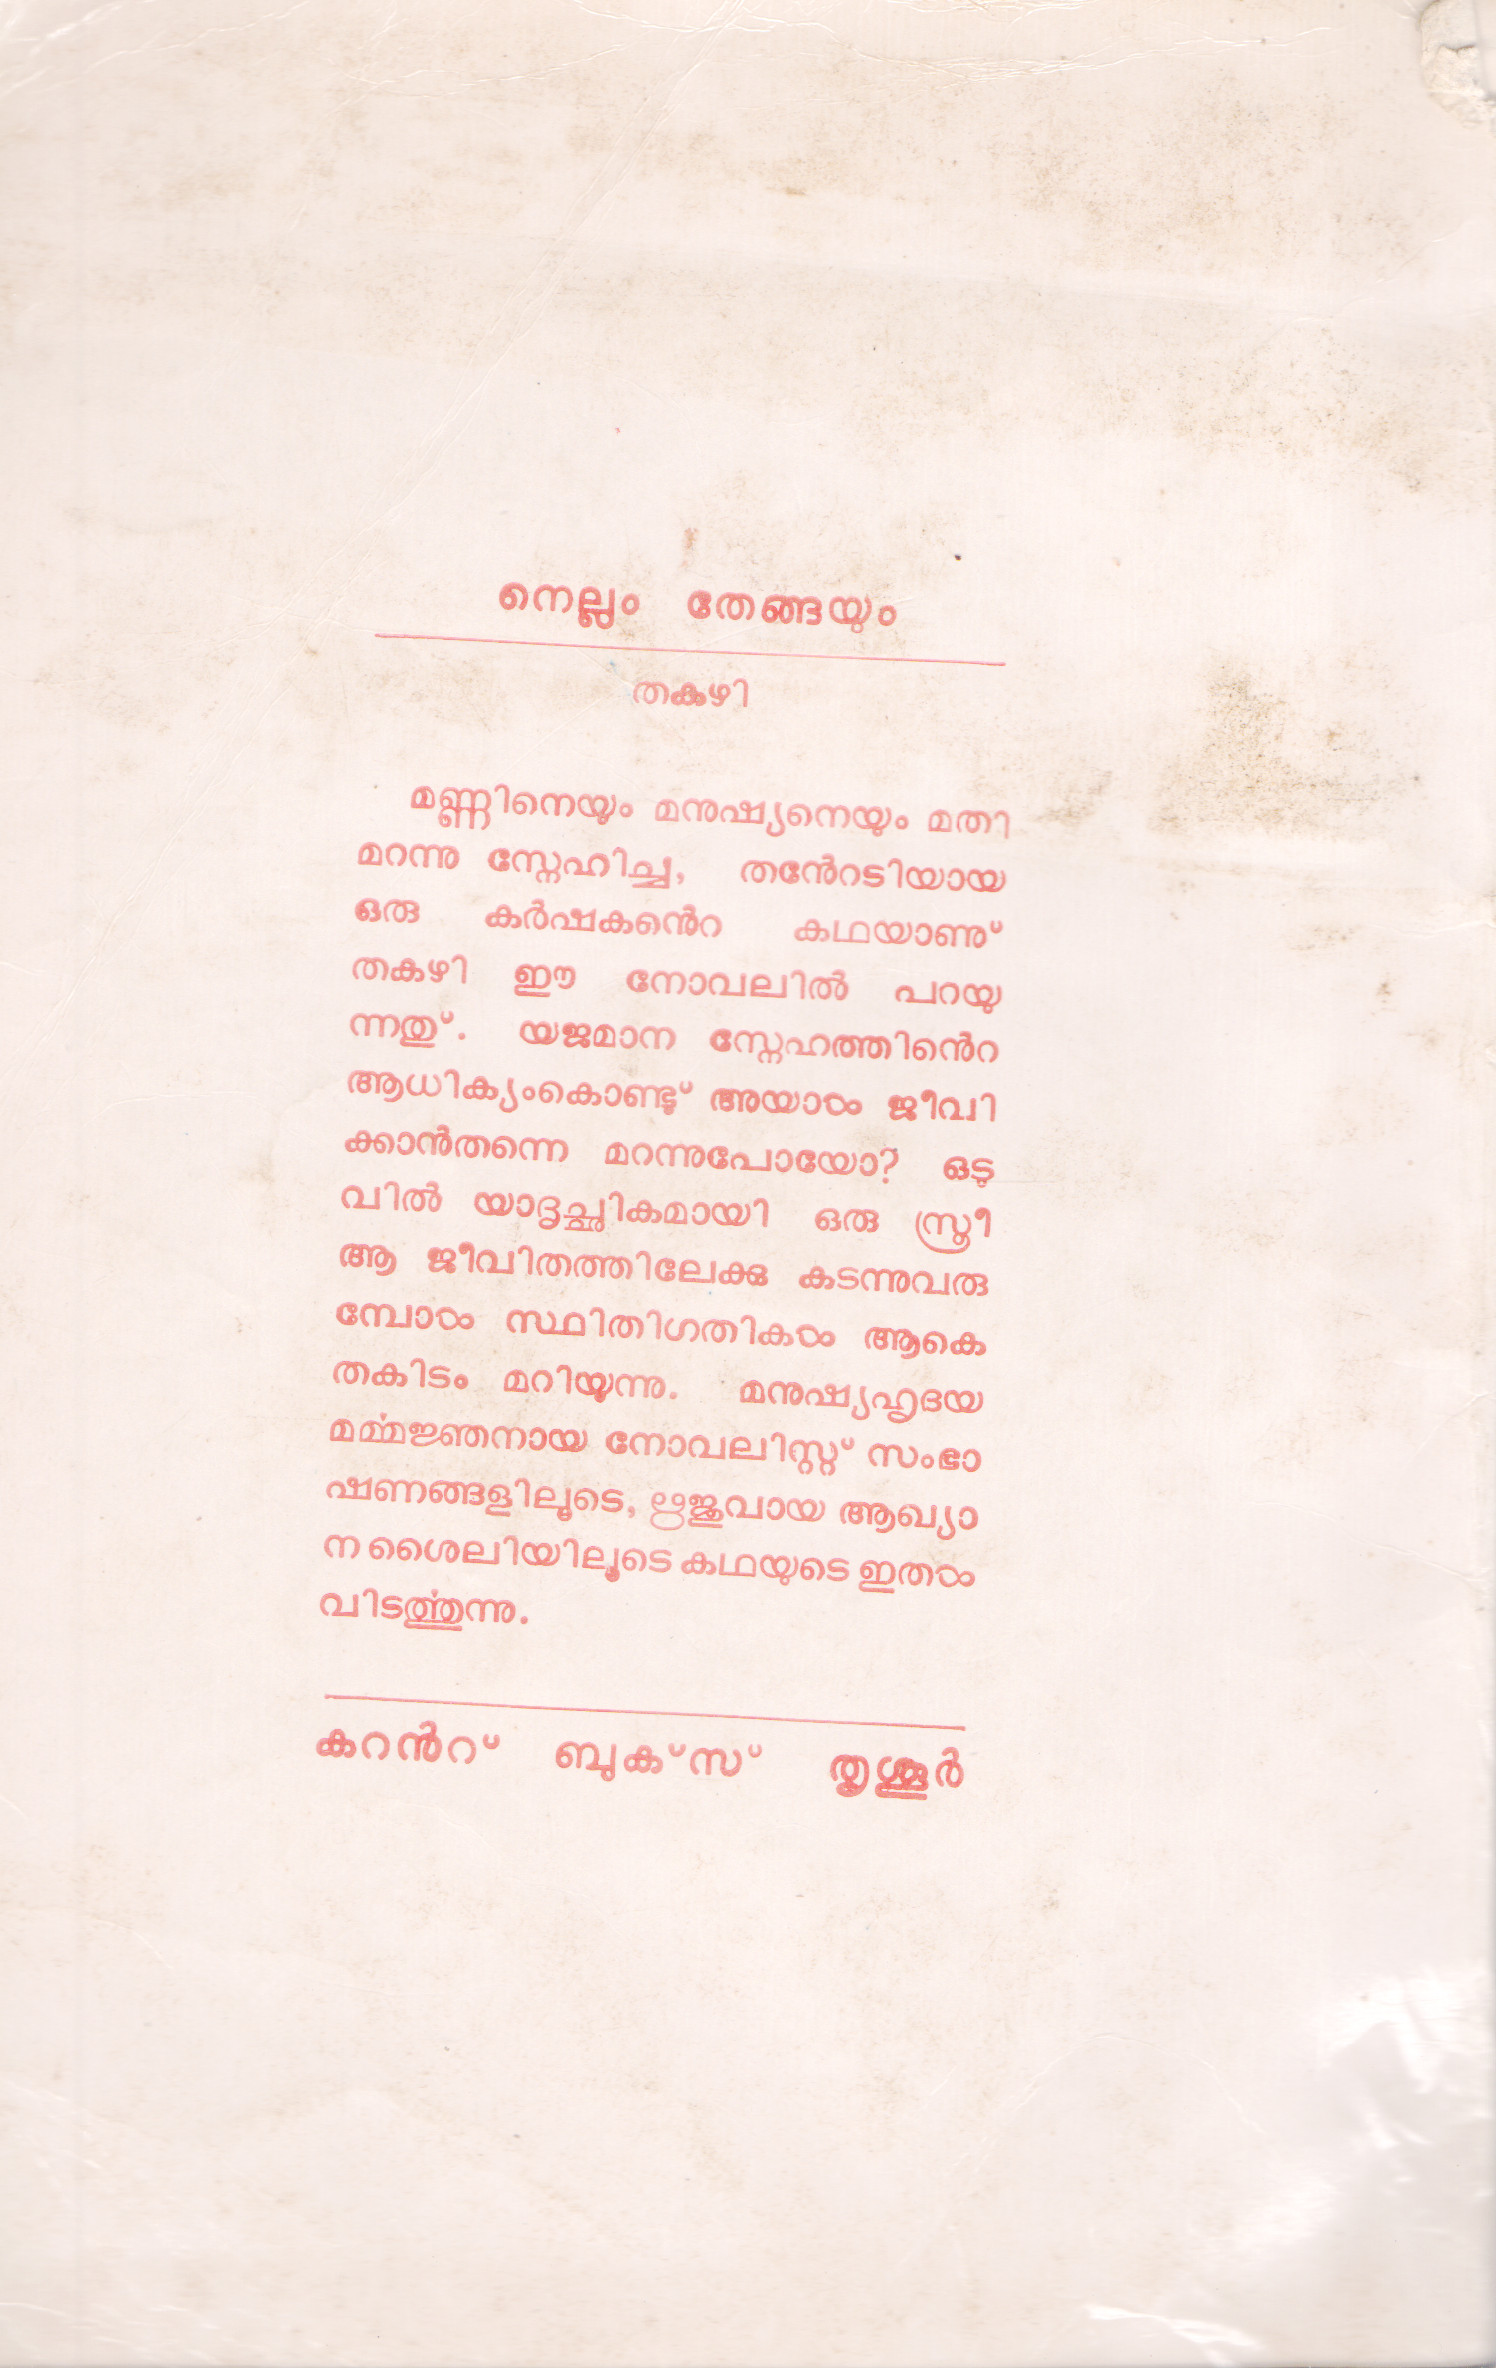 നെല്ലും തേങ്ങയും
തകഴി
മണ്ണിനെയും മനുഷ്യനെയും മതി
മറന്നു സ്നേഹിച്ച, തൻേറടിയായ
ഒരു കർഷകൻെറ കഥയാണു്
തകഴി ഈ നോവലിൽ പറയു
ന്നതു്. യജമാന സ്നേഹത്തിൻെറ
ആധിക്യംകൊണ്ടു് അയാൾ ജീവി
ക്കാൻതന്നെ മറന്നുപോയോ? ഒടു
വിൽ യാദൃച്ഛികമായി ഒരു സ്ത്രീ
ആ ജീവിതത്തിലേക്കു കടന്നുവരു
മ്പോൾ സ്ഥിതിഗതികൾ ആകെ
തകിടം മറിയുന്നു. മനുഷ്യഹൃദയ
മൎമ്മജ്ഞനായ നോവലിസ്റ്റ് സംഭാ
ഷണങ്ങളിലൂടെ, ഋജുവായ ആഖ്യാ
ന ശൈലിയിലൂടെ കഥയുടെ ഇതൾ
വിടൎത്തുന്നു.
കറൻറ് ബുക്സ് തൃശ്ശൂർ